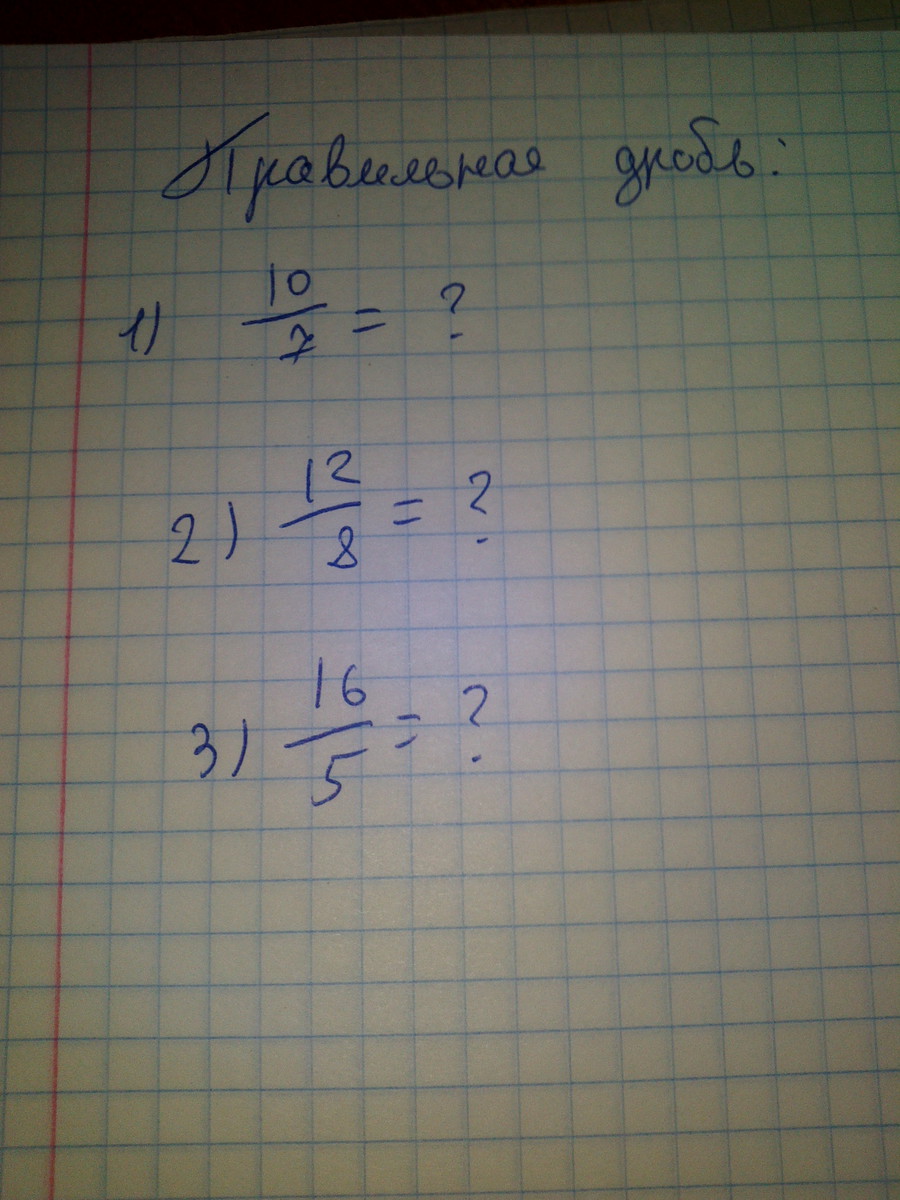 Правильная дробь:
1) 10/7 = ?
2) 12/8 = ?
3) 16/5 = ?